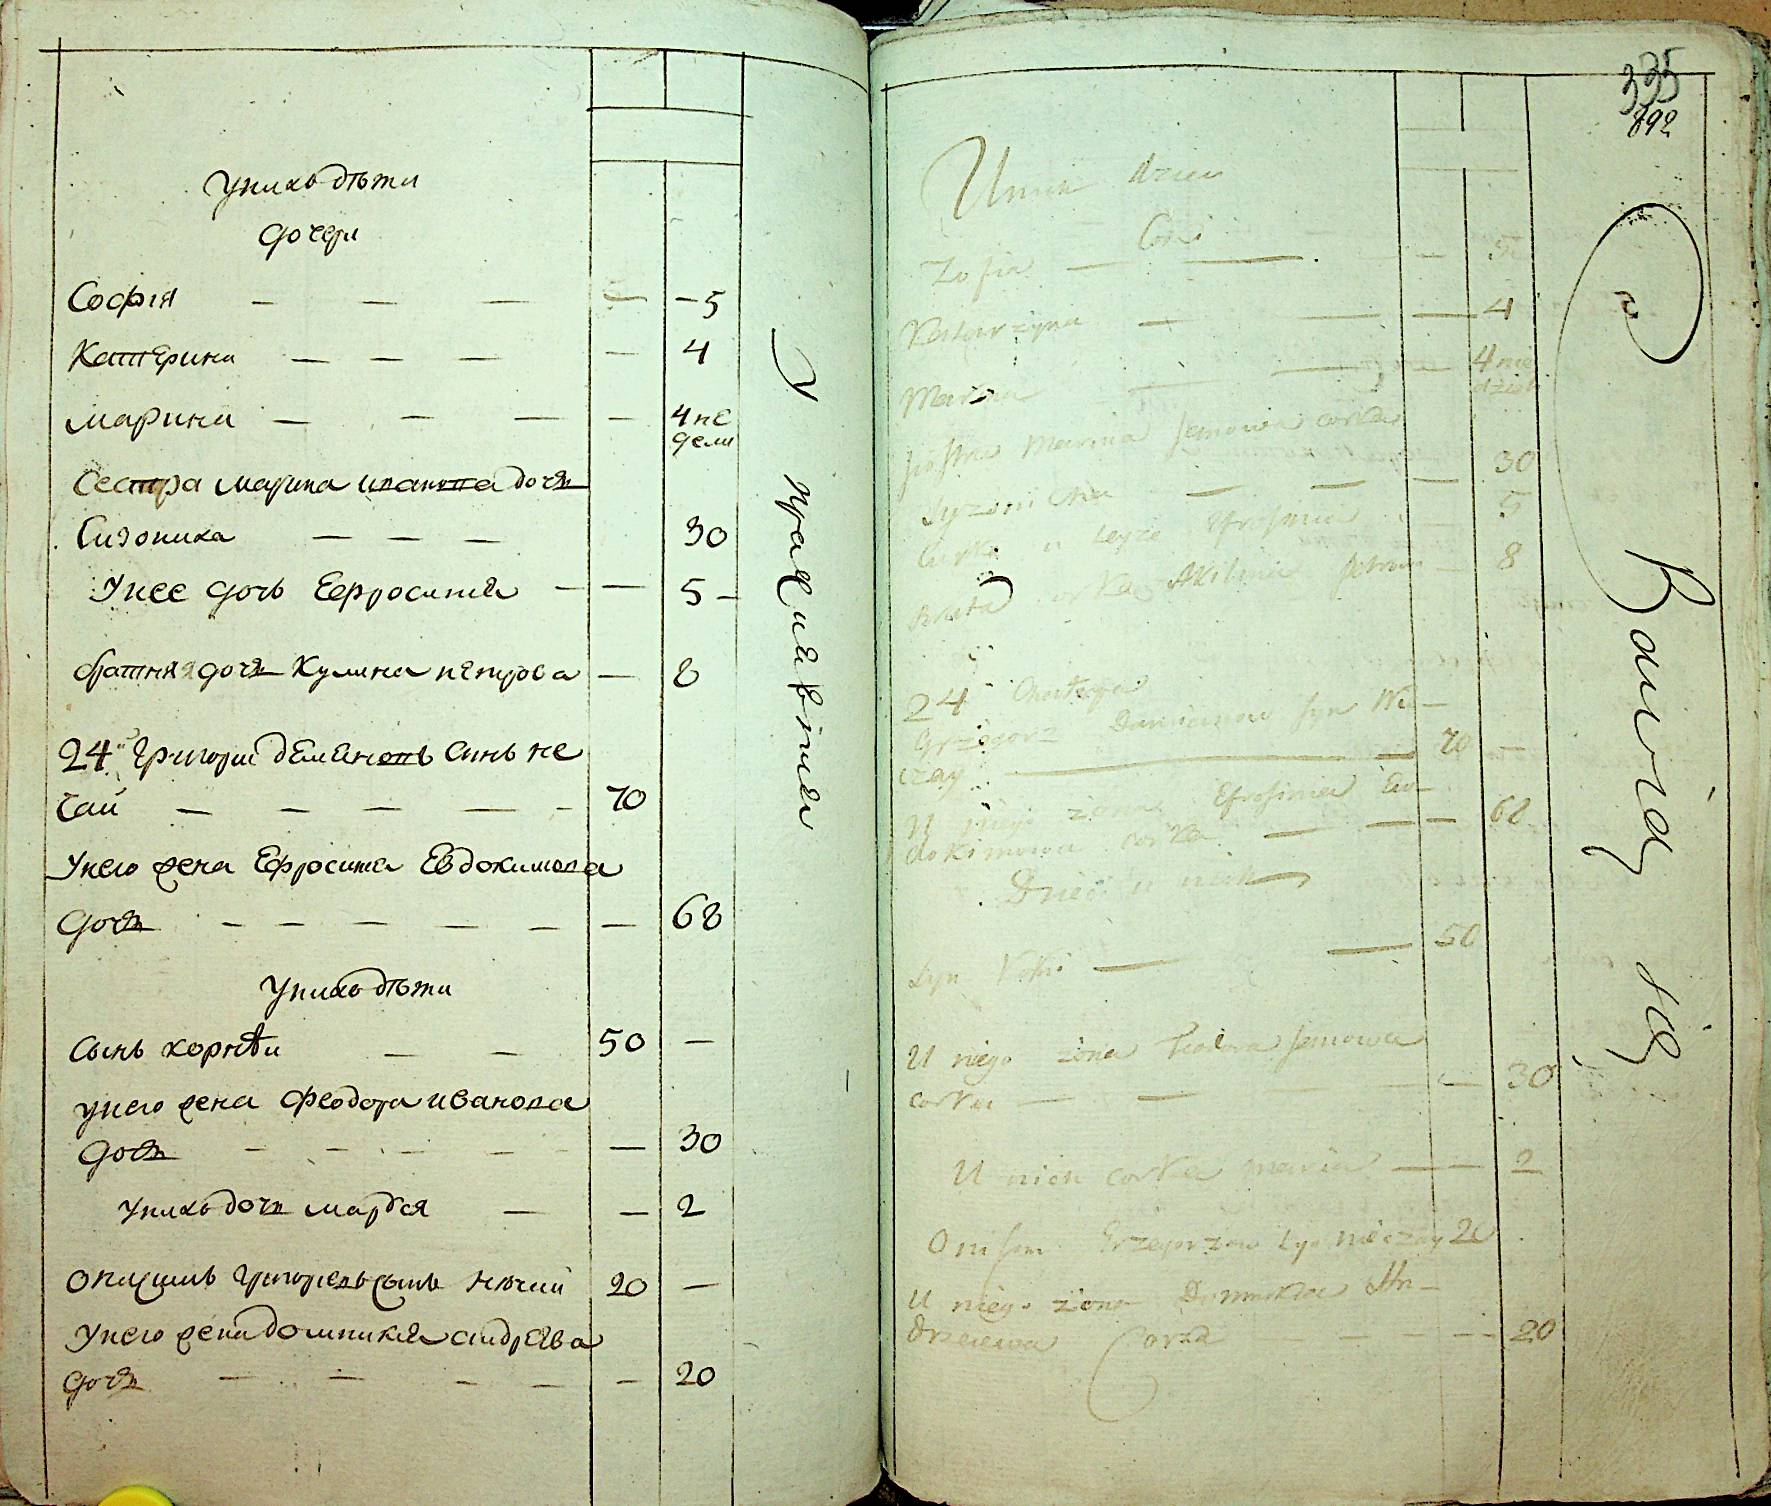 Унихъ дѣти
дочери
София — — — — 5
Катерина — — — — 4
Марина — — — — 4 не
дели
Сестра Марина Иванова дочь
Сизониха — — — 30
Унее дочь Ефросиния — — 5
братняя дочь Кулина Петрова — 8
24 Григори Деменовъ синъ Не
чай — — — — — 70
Унего жена Ефросиния Евдокимова
дочь — — — — — — 68
Унихъ дѣти
Сынъ Корнѣи — — 50 —
унего жена Феодора Иванова
дочь — — — — — — 30
Унихъ дочь Марфа — — 2
Онисимъ Григориевъ сынъ Нечай 20 —
Унего жена Домникия Андреева
дочь — — — — — 20
335
892
U nich dzieci
Corki
Zofia — — — 5
Katarzyna — — — 4
Marina — — — 4 nie
dziel
siostra Marina Semonova corka
Syzonicha — — — 30
Efrosinia — 5
Brata corka Akilina — 8
24 Chałupa
Grzegorz Damianow syn Nie—
czay — — 70
U niego żona Efrosinia Ew—
dokimowa corka — — — 68
Dzieci u nich
Syn — — 50
U niego żona Teodora Semonova
corka — — — 30
U nich corka Maria — — 2
Onisim Grzegorzow syn Nieczay 20
U niego żona Domnikia An—
drzeiewa Corka — — — 20
Bawią się